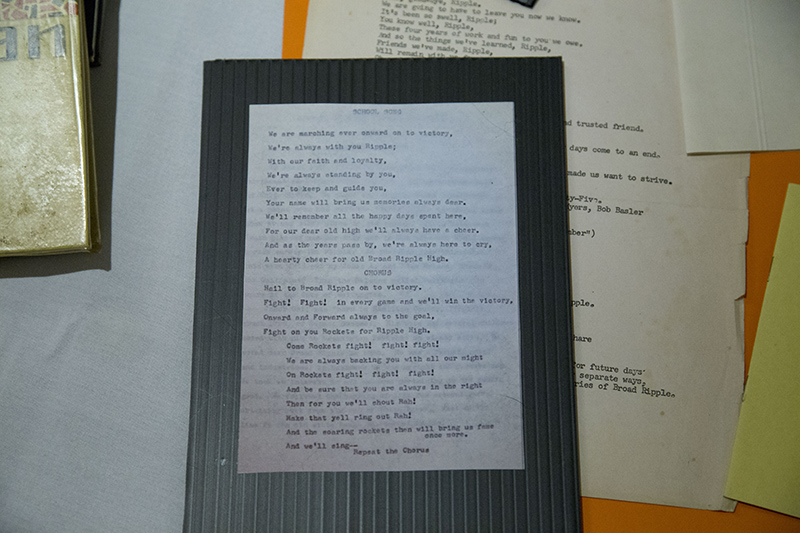 an
Ripple.
We are going to have to leave you now we know.
It's been so swell, Ripple;
You know well, Ripple,
These four years of work and fun to you we owe.
And so the things we've learned, Ripple,
Friends we've made, Ripple,
Will remain with
SCHOOL SONG
We are marching ever onward on to victory,
We're always with you Ripple;
With our faith and loyalty,
We're always standing by you,
Ever to keep and guide you,
Your name will bring us memories always dear.
We'll remember all the happy days spent here,
For our dear old high we'll always have a cheer.
And as the years pass by, we're always here to cry,
A hearty cheer for old Broad Ripple High.
CHORUS
Hail to Broad Ripple on to victory.
Fight! Fight! in every game and we'll win the victory,
Onward and Forward always to the goal,
Fight on you Rockets for Ripple High.
Come Rockets fight! fight! fight!
We are always backing you with all our might
On Rockets fight! fight! fight!
And be sure that you are always in the right
Then for you we'll shout Rah!
Make that yell ring out Rah!
And the soaring rockets then will bring us fame
once more.
And we'll sing--
Repeat the Chorus
d trusted friend.
days come to an end.
made us want to strive.
ty-Five.
yers, Bob Basler
ber")
pple.
hare
For future days
separate ways,
ries of Broad Ripple.